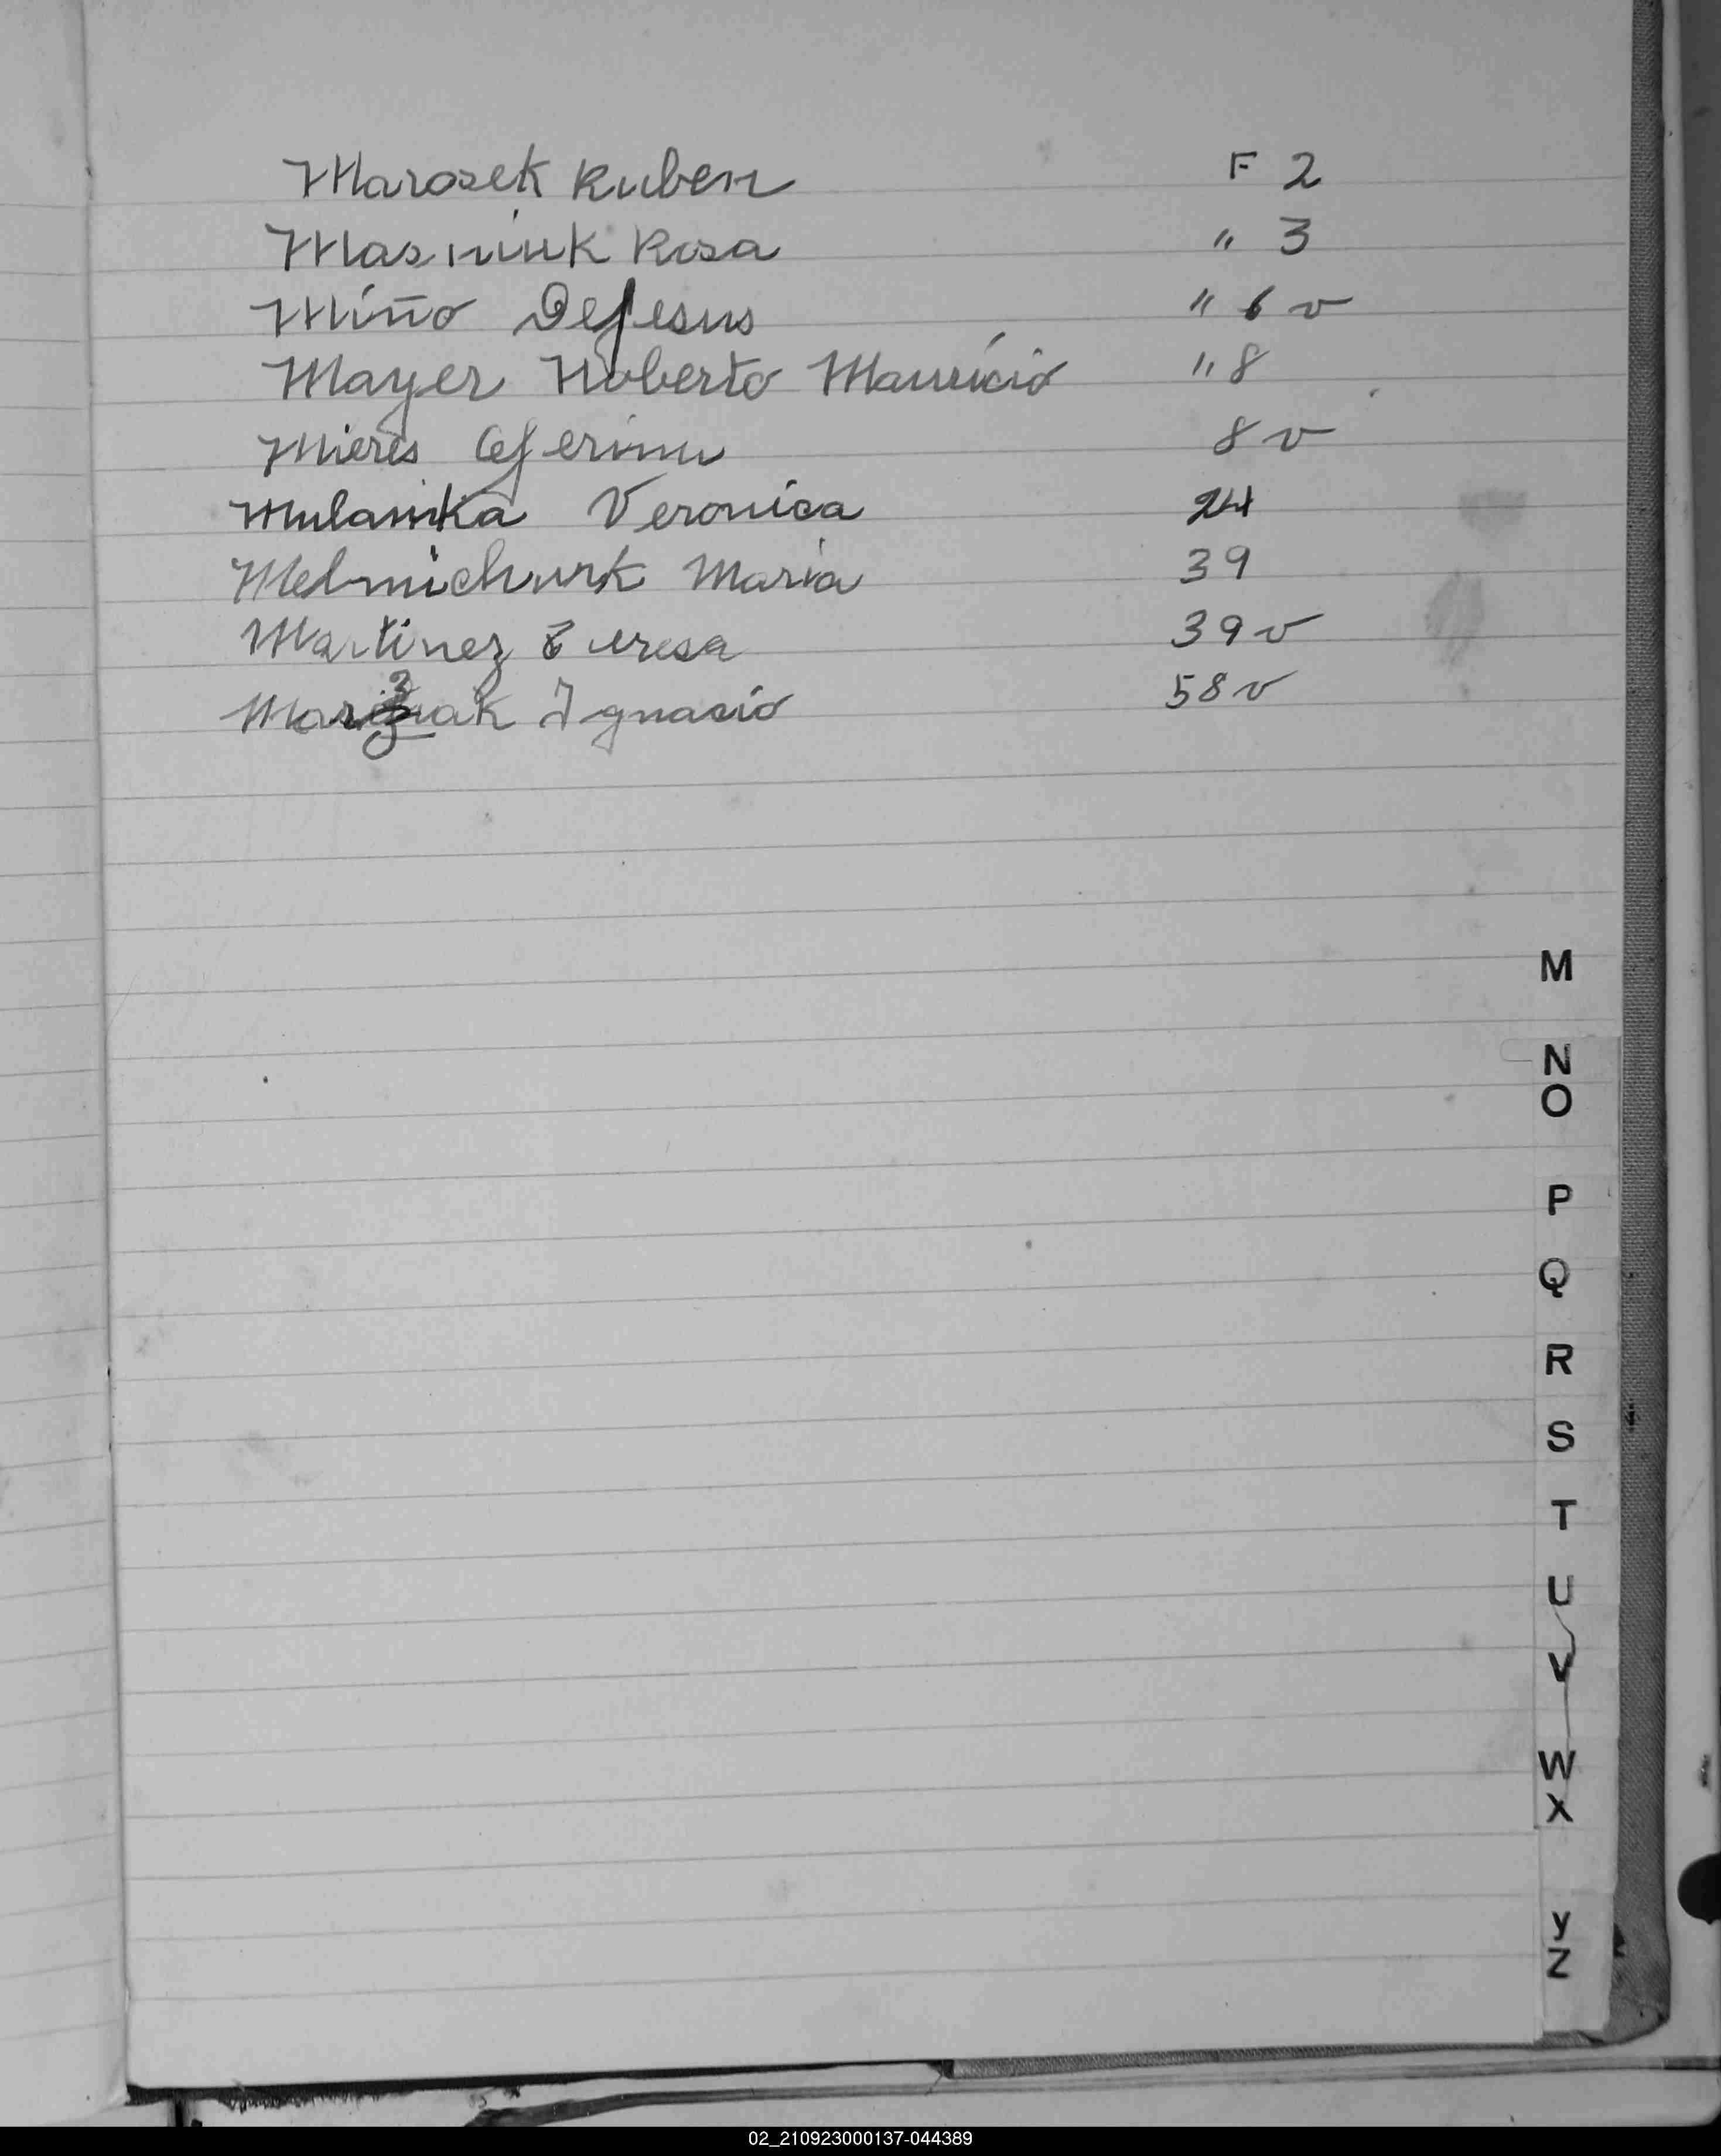 Marosek Ruben F 2
Masniuk Rosa " 3
Miño DeJesus " 6 v
Mayer Roberto Mauricio " 8
Mieres Ceferinu 8 v
Mulanika Veronica 24
Melnichurk Maria 39
Martinez Teresa 39 v
Ignasio 58 v
M
N
O
P
Q
R
S
T
U
V
W
X
y
Z
02_210923000137-044389